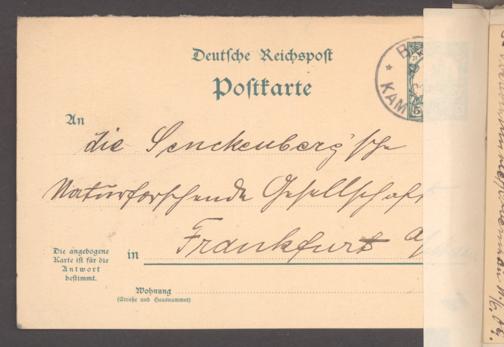 Deutsche Reichspost
Postkarte
An
die Senckenberg'sche
Naturforschende Gesellschaft
in Frankfurt a/
Die angebogene
Karte ist für die
Antwort
bestimmt.
Wohnung
(Straße und Hausnummer)
KAM
5